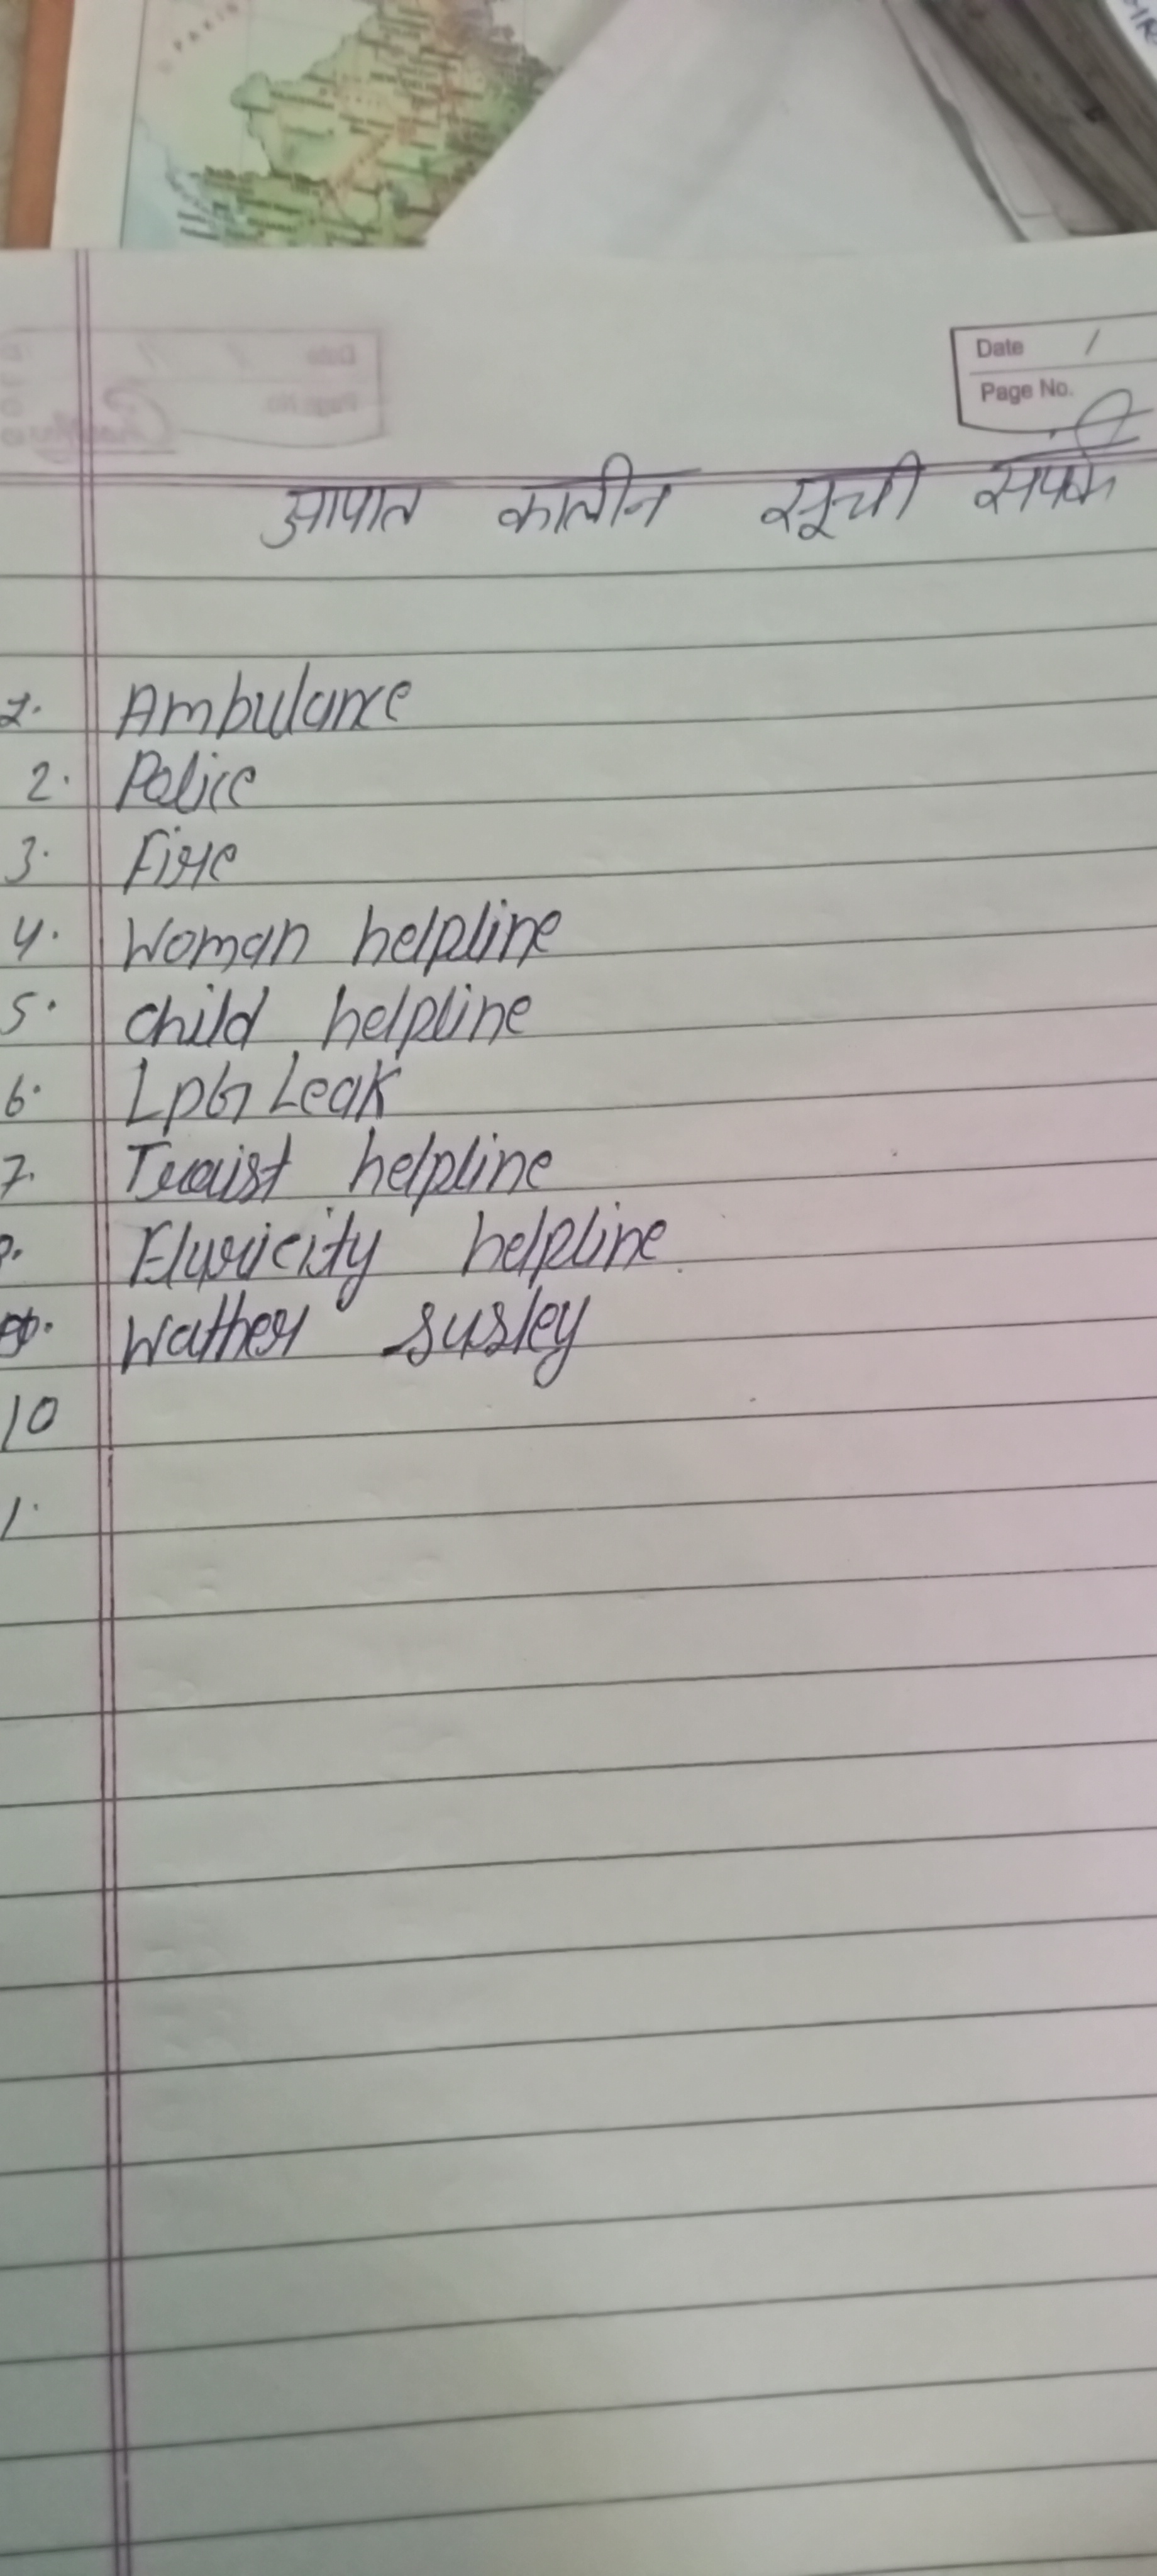 Date /
Page No.
आपात कालीन सूची संपर्क
1. Ambulance
2. Police
3. Fire
4. Woman helpline
5. child helpline
6. LpG Leak
7. Touist helpline
helpline
Wather
10
1.